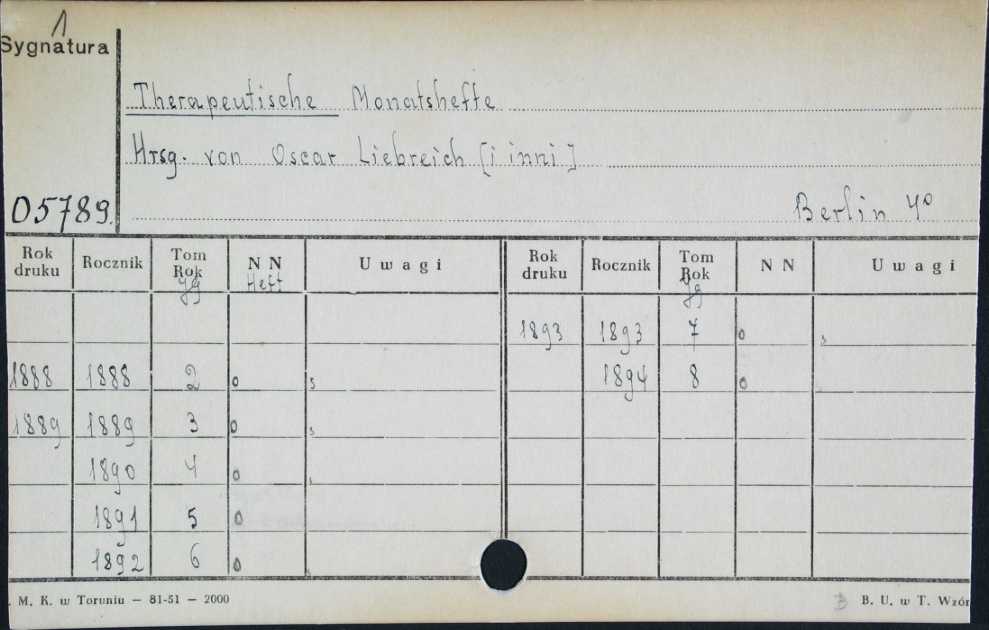 1
Sygnatura
Therapeutische Monatshefte
Hrsg. von Oscar Liebreich [i inni]
05789.
Berlin 4°
Rok druku Rocznik Tom Rok Jg N N Heft Uwagi Rok druku Rocznik Tom Rok Jg N N Uwagi
1893 1893 7 0
1888 1888 2 0 1894 8 0
1889 1889 3 0
1890 4 0
1891 5 0
1892 6 0
. M. K. w Toruniu — 81-51 — 2000
B. U. w T. Wzór